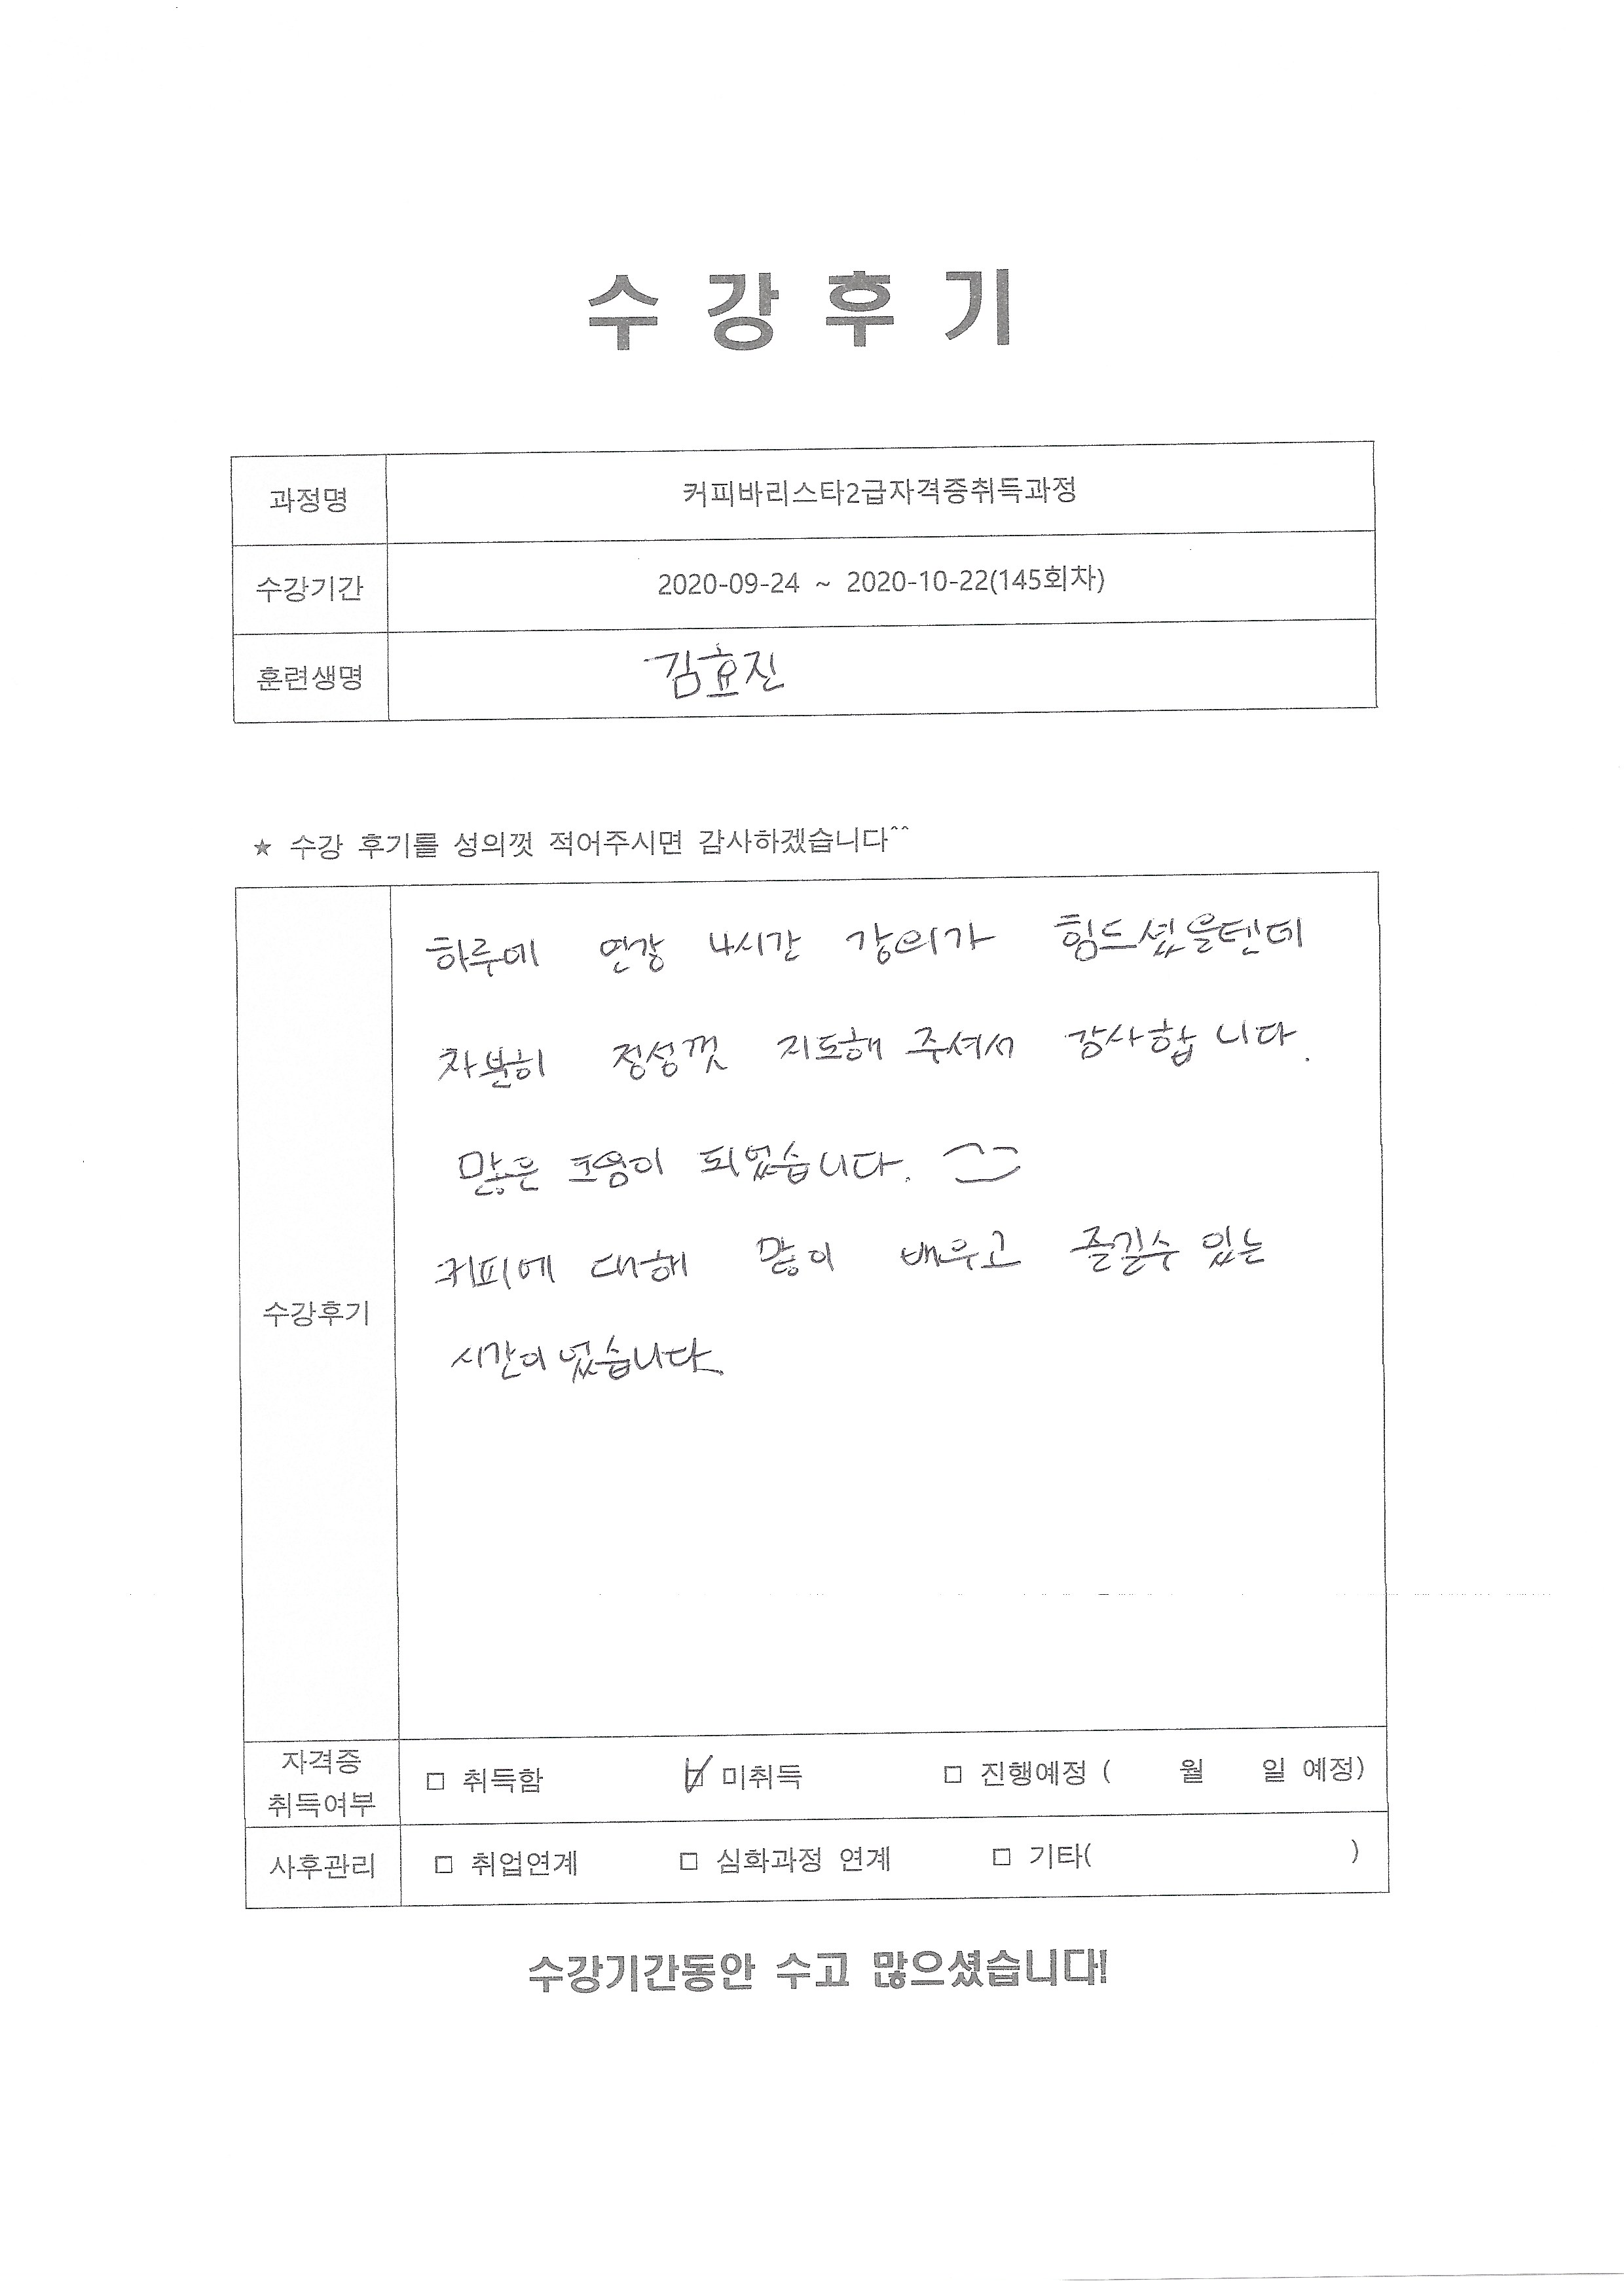 수강후기
과정명 커피바리스타2급자격증취득과정
수강기간 2020-09-24 ~ 2020-10-22(145회차)
훈련생명 김효진
★ 수강 후기를 성의껏 적어주시면 감사하겠습니다^^
하루에 연강 4시간 강의가 힘드셨을텐데
차분히 정성껏 지도해 주셔서 감사합니다.
많은 도움이 되었습니다.
커피에 대해 많이 배우고 즐길수 있는
수강후기
시간이었습니다
자격증
취득여부
□ 취득함 ☑ 미취득 □ 진행예정 ( 월 일 예정)
사후관리 □ 취업연계 □ 심화과정 연계 □ 기타( )
수강기간동안 수고 많으셨습니다!